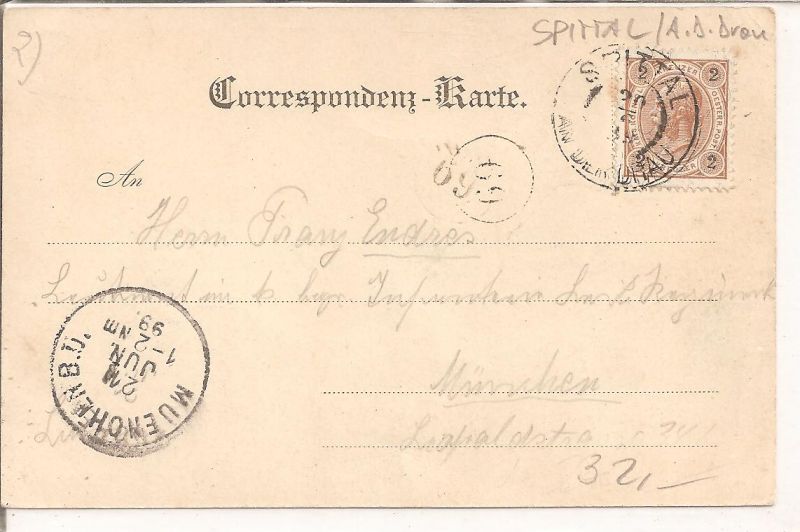 2)
SPITTAL/A.D. Drau
Correspondenz-Karte.
SPITTAL
AN DER DRAU
2 2
2 2
69
69
An
Herrn Franz Endres
Leutnant im k. bayr. Infanterie
München
Leopoldstr
MUENCHEN B.U.
JUN.
1-2 Nm
99.
32,-